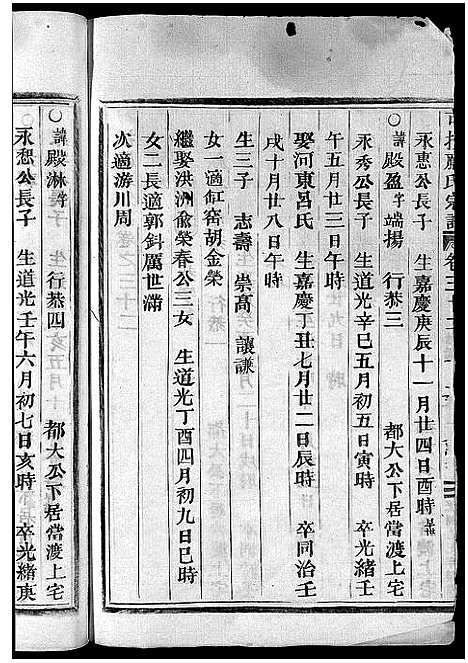 永惠公長子 生嘉慶庚辰十一月廿四日酉時
諱殿盈字端揚 行恭三 都大公下居當渡上宅
永秀公長子 生道光辛巳五月初五日寅時 卒光緒壬
午五月廿三日午時
娶河東呂氏 生嘉慶丁丑七月廿二日辰時 卒同治壬
戌十月廿八日午時
生三子 志壽 崇高 讓謙
女一適缸窑胡金榮
繼娶洪洲俞榮春公三女 生道光丁酉四月初九日巳時
女二長適郭斜厲世滿
次適游川周
諱殿淋字 行恭四 都大公下居當渡上宅
永愬公長子 生道光壬午六月初七日亥時 卒光緒庚